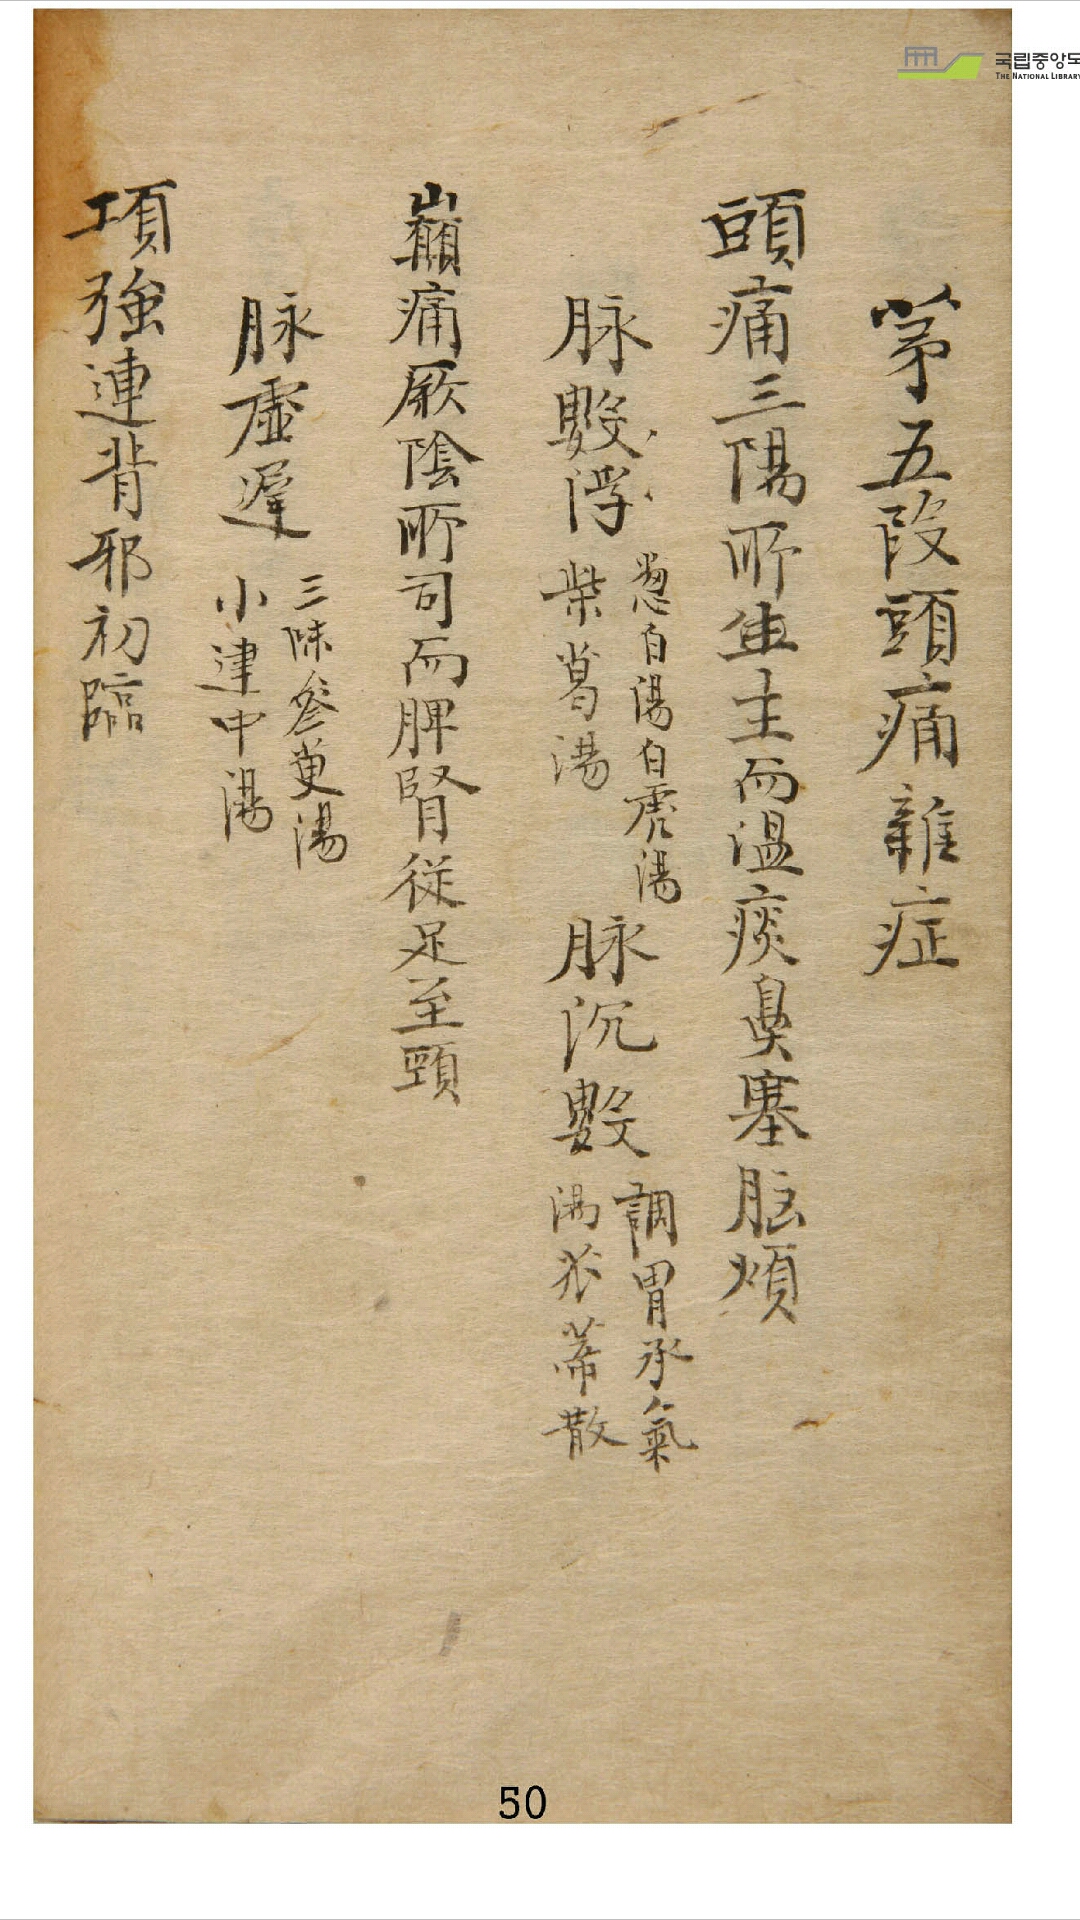 第五段頭痛雜症
頭痛三陽所生主而溫痰鼻塞腦煩
脉數浮 葱白湯白虎湯 柴葛湯 脉沉數 調胃承氣 湯苽蒂散
巓痛厥陰所司而脾腎從足至頸
脉虛遲 三味參萸湯 小建中湯
項強連背邪初臨
국립중앙도
THE NATIONAL LIBRARY
50